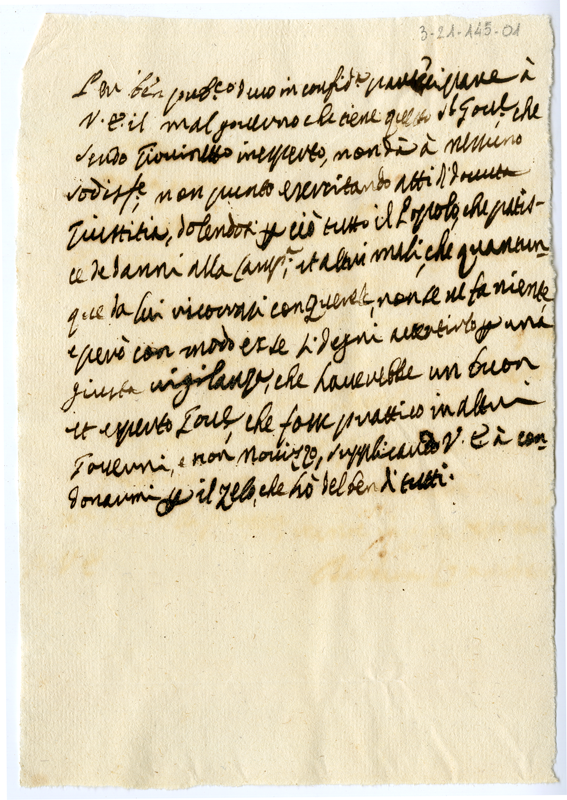 3-21-145-01
Per ben pub.co devo in confid.a participare à
V. E. il mal governo che tiene questo S.r Gov.re, che
sendo Giovinetto inesperto, non dà à nessuno
sodisf.e, non punto esercitando atti di dovuta
Giustitia, dolendosi p ciò tutto il Popolo, che patis-
ce de danni alla Camp.a, et altri mali, che quantun-
que da lui ricorrasi con Querele, non ce ne fa niente
e però con modo si degni p una
giusta vigilanza, che haverebbe un buon
et esperto Gov.re, che fosse prattico in altri
Governi, e non Novizzo, supplicando V. E. à con-
donarmi p il zelo, che hò del ben di tutti.